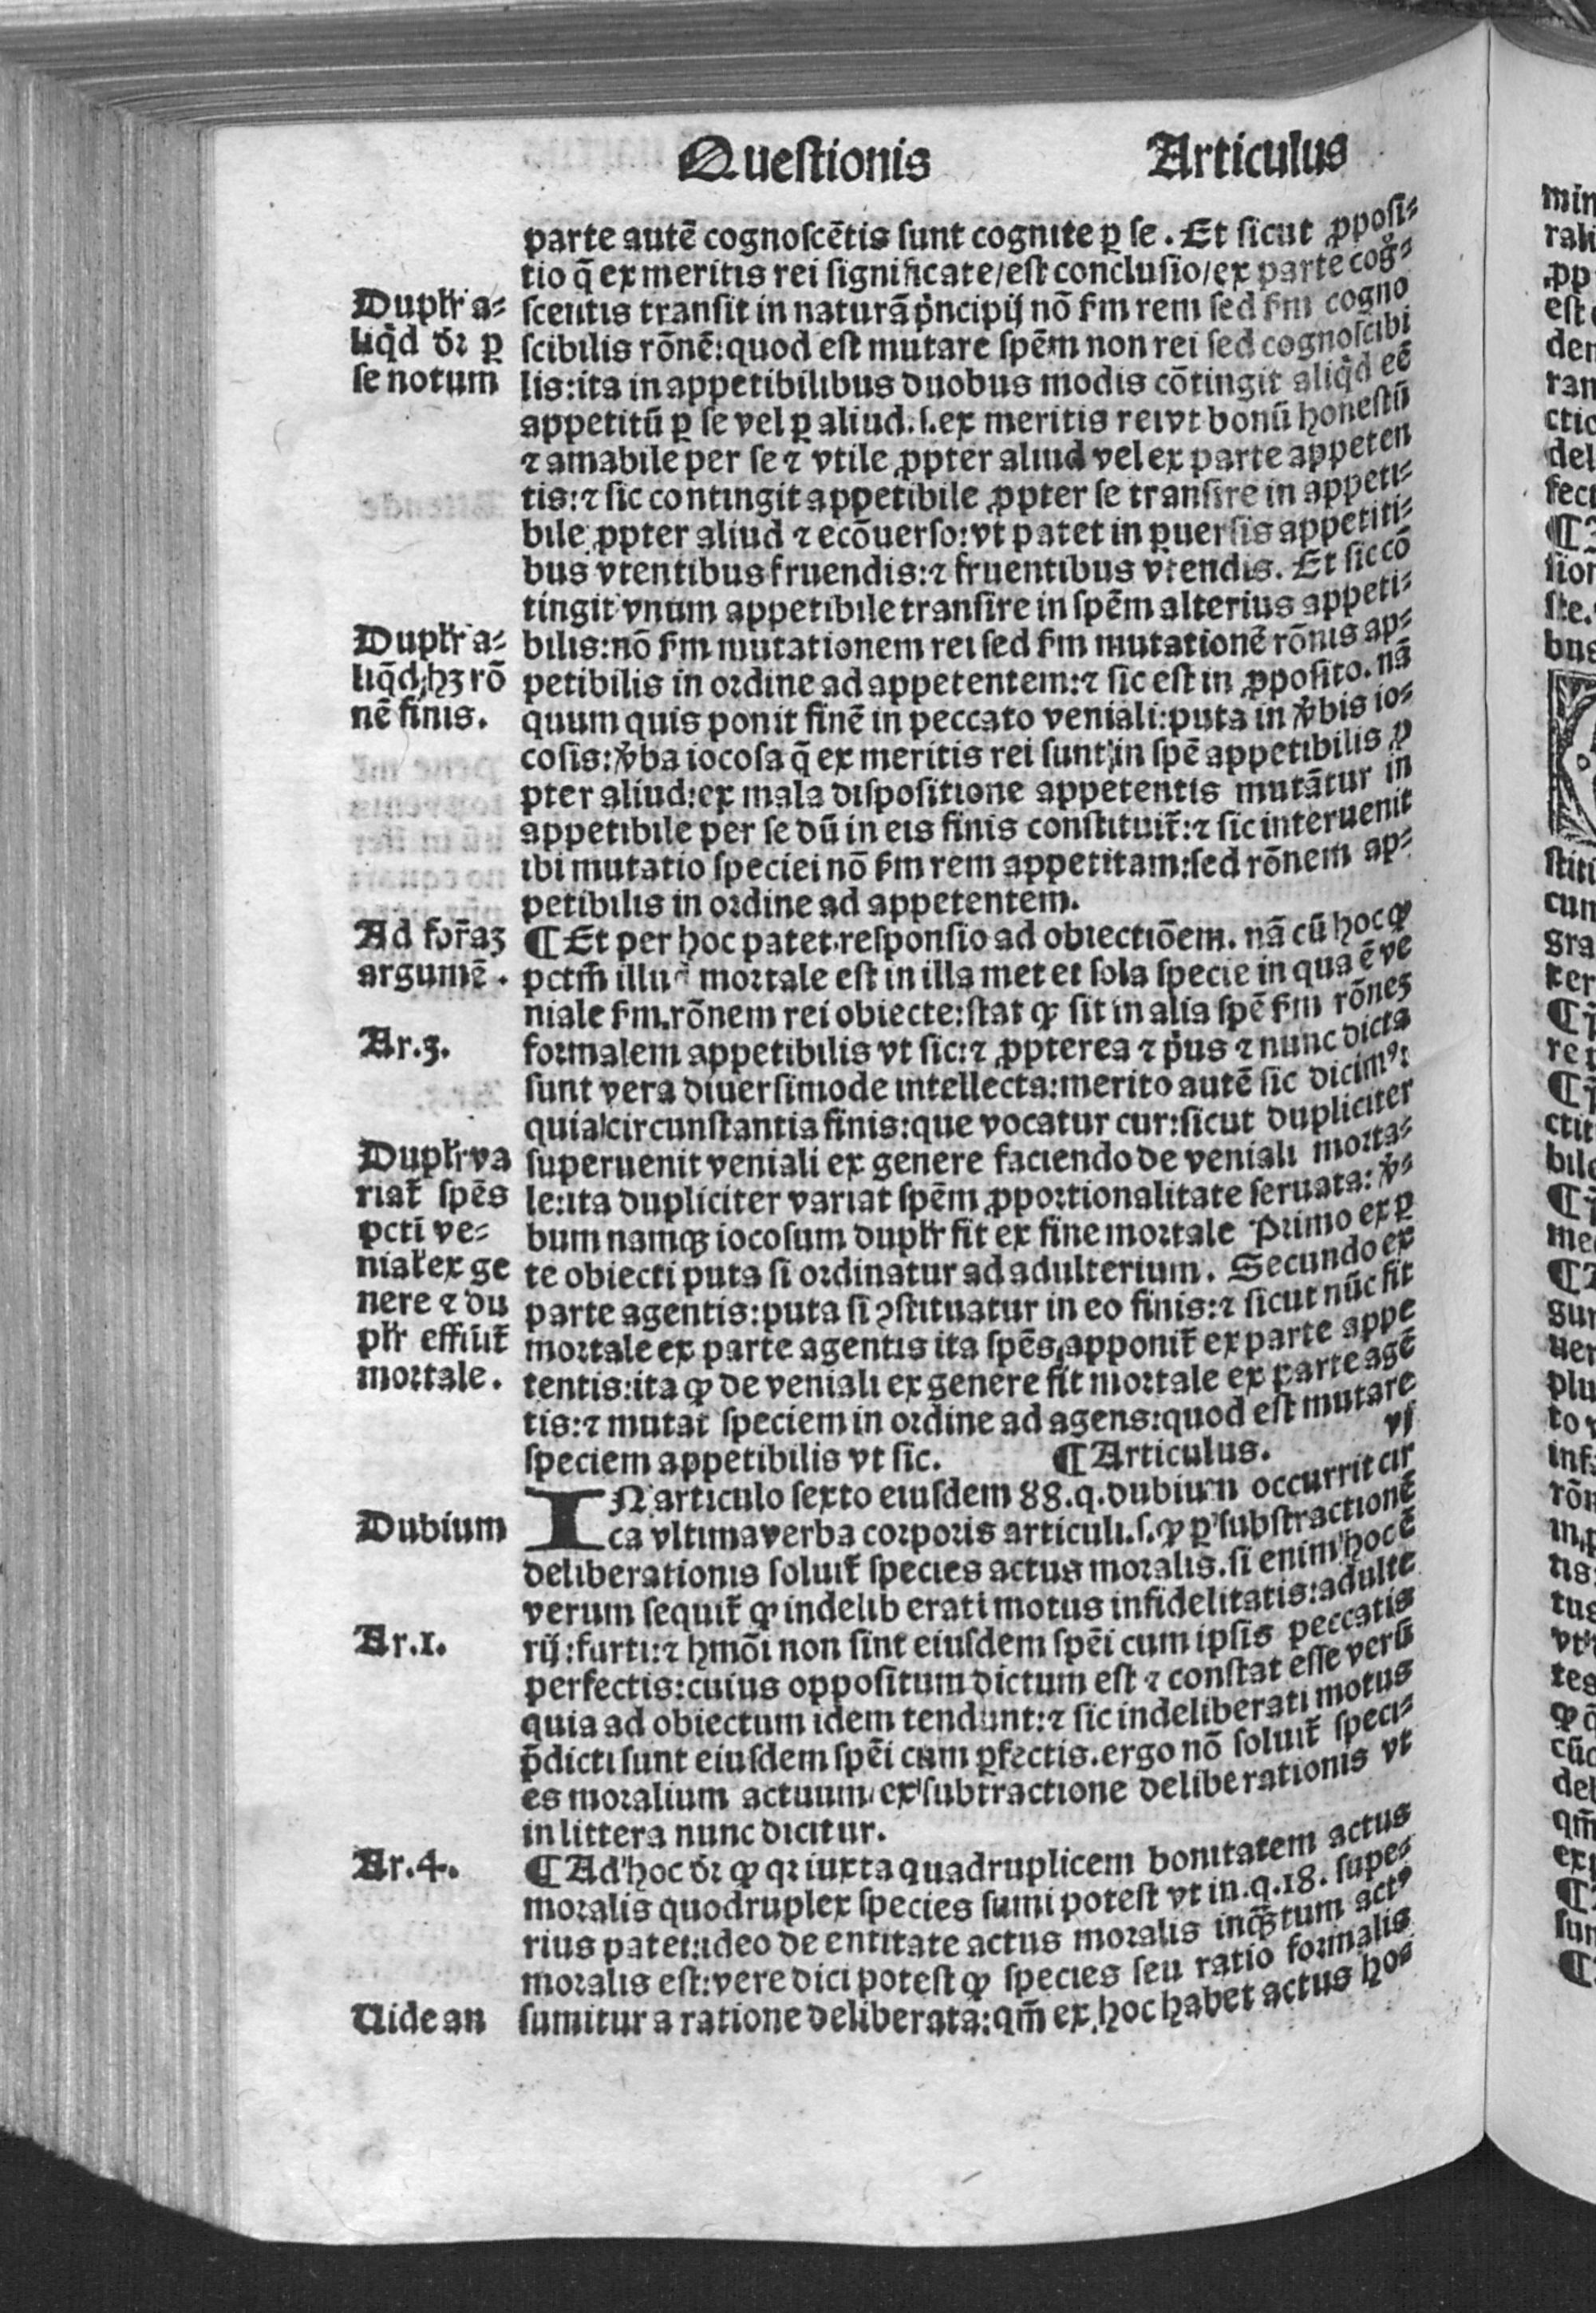 Questionis Articulus
parte autē cognoscētis sunt cognite ꝑ se. Et sicut ꝓposi⸗
tio q̄ ex meritis rei significate/est conclusio/ex parte cog̊⸗
scentis transit in naturā pͥncipij nō ẜm rem sed ẜm cogno
scibilis rōnē:quod est mutare spēm non rei sed cognoscibi
lis:ita in appetibilibus duobus modis cōtingit aliqͥd eē
appetitū ꝑ se vel ꝑ aliud.s.ex meritis rei vt bonū honestū
⁊ amabile per se ⁊ vtile ꝓpter aliud vel ex parte appeten
tis:⁊ sic contingit appetibile ꝓpter se transire in appeti⸗
bile ꝓpter aliud ⁊ ecōuerso:vt patet in ꝑuersis appetiti⸗
bus vtentibus fruendis:⁊ fruentibus vtendis. Et sic cō
tingit vnum appetibile transire in spēm alterius appeti⸗
bilis:nō ẜm mutationem rei sed ẜm mutationē rōnis ap⸗
petibilis in ordine ad appetentem:⁊ sic est in ꝓposito. nā
quum quis ponit finē in peccato veniali:puta in v̾bis io⸗
cosis:v̾ba iocosa q̄ ex meritis rei sunt in spē appetibilis ꝓ
pter aliud:ex mala dispositione appetentis mutātur in
appetibile per se dū in eis finis constituit̄:⁊ sic interuenit
ibi mutatio speciei nō ẜm rem appetitam:sed rōnem ap⸗
petibilis in ordine ad appetentem.
¶ Et per hoc patet responsio ad obiectiōem. nā cū hoc ꝙ
pctm̄ illud mortale est in illa met et sola specie in qua ē ve
niale ẜm rōnem rei obiecte:stat ꝙ sit in alia spē ẜm rōneꝫ
formalem appetibilis vt sic:⁊ ꝓpterea ⁊ pͥus ⁊ nunc dicta
sunt vera diuersimode intellecta:merito autē sic dicimꝰ:
quia circunstantia finis:que vocatur cur:sicut dupliciter
superuenit veniali ex genere faciendo de veniali morta⸗
le:ita dupliciter variat spēm ꝓportionalitate seruata: v̾⸗
bum namqꝫ iocosum duplr̄ fit ex fine mortale Primo ex ꝑ
te obiecti puta si ordinatur ad adulterium. Secundo ex
parte agentis:puta si ꝯstituatur in eo finis:⁊ sicut nūc fit
mortale ex parte agentis ita spēs apponit̄ ex parte appe
tentis:ita ꝙ de veniali ex genere fit mortale ex parte agē
tis:⁊ mutat speciem in ordine ad agens:quod est mutare
speciem appetibilis vt sic. ¶ Articulus. vj
IN articulo sexto eiusdem 88.q.dubium occurrit cir
ca vltima verba corporis articuli.s.ꝙ ꝑ substractionē
deliberationis soluit̄ species actus moralis.si enim hoc ē
verum sequit̄ ꝙ indelib erati motus infidelitatis:adulte
rij:furti:⁊ hmōi non sint eiusdem spēi cum ipsis peccatis
perfectis:cuius oppositum dictum est ⁊ constat esse verū
quia ad obiectum idem tendunt:⁊ sic indeliberati motus
p̄dicti sunt eiusdem spēi cum ꝑfectis.ergo nō soluit̄ speci⸗
es moralium actuum ex subtractione deliberationis vt
in littera nunc dicitur.
¶ Ad hoc dr̄ ꝙ qr iuxta quadruplicem bonitatem actus
moralis quodruplex species sumi potest vt in.q.18. supe⸗
rius patet:ideo de entitate actus moralis inqͣ̄tum actꝰ
moralis est:vere dici potest ꝙ species seu ratio formalis
sumitur a ratione deliberata:qm̄ ex hoc habet actus hos
Duplr̄ a⸗
liqͥd dr̄ ꝑ
se notum
Duplr̄ a⸗
liqͥd hꝫ rō
nē finis.
Ad for̄aꝫ
argumē.
Ar.3.
Duplr̄ va
riat̄ spēs
pcti ve⸗
nial̄ ex ge
nere ⁊ du
plr̄ effiūt̄
mortale.
Dubium
Ar.1.
Ar.4.
Uide an